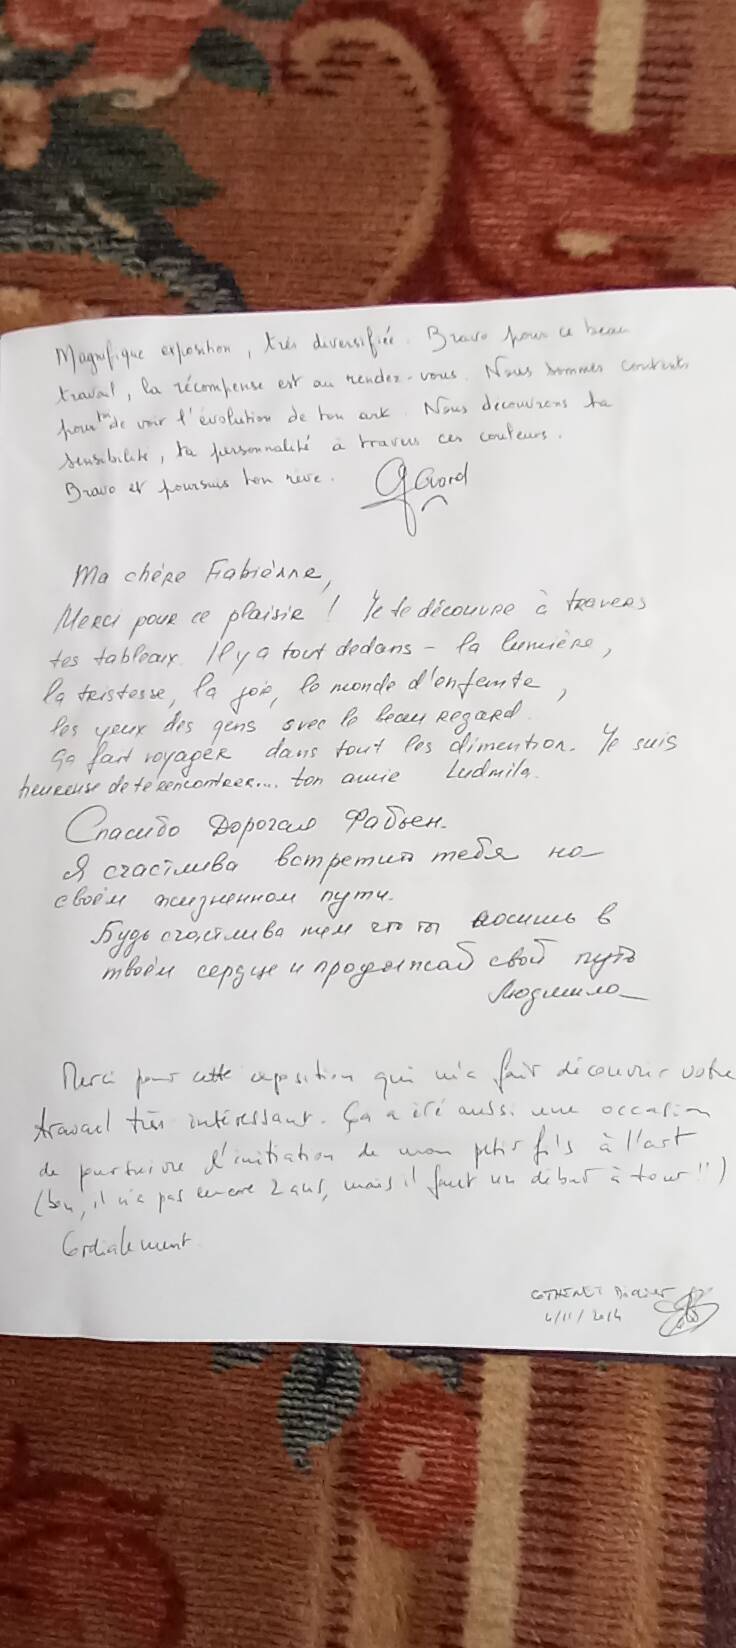 Magnifique exposition, très diversifiée. Bravo pour ce beau
travail, la récompense est au rendez-vous. Nous sommes contents
de voir l'évolution de ton art. Nous découvrons ta
sensibilité, ta personnalité à travers ces couleurs.
Bravo et poursuis ton rêve.
Ma chère Fabiènne,
Merci pour ce plaisir ! Je te découvre à travers
tes tableaux. Il y a tout dedans - la lumière,
la tristesse, la joie, le monde d'enfente,
les yeux des gens avec le beau regard.
ça fait voyager dans tout les dimention. Je suis
heureuse de te rencontrer.... ton amie Ludmila.
Спасибо Дорогая Фабьен.
Я счастлива встретить тебя на
своём жизненном пути.
Будь счастлива тем что ты носишь в
твоём сердце и продолжай свой путь
Людмила
Merci pour cette exposition qui m'a fait découvrir votre
travail très intéressant. Ça a été aussi une occasion
de poursuivre l'initiation de mon petit fils à l'art
(bon, il n'a pas encore 2 ans, mais il faut un début à tout !!)
Cordialement
Didier
/11/2014